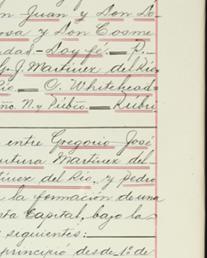 n Juan y Don Do-
sa y Don Cosme
dad - Doy fé - P.
J. Martinez del Rio
Rio - O. Whitehead -
ño. N. y Púbco. - Rubri
entre Gregorio José
utura Martinez del
tinez del Rio, y Pedro
la formación de una
sta Capital, bajo la
s siguientes:
principió desde 1º de